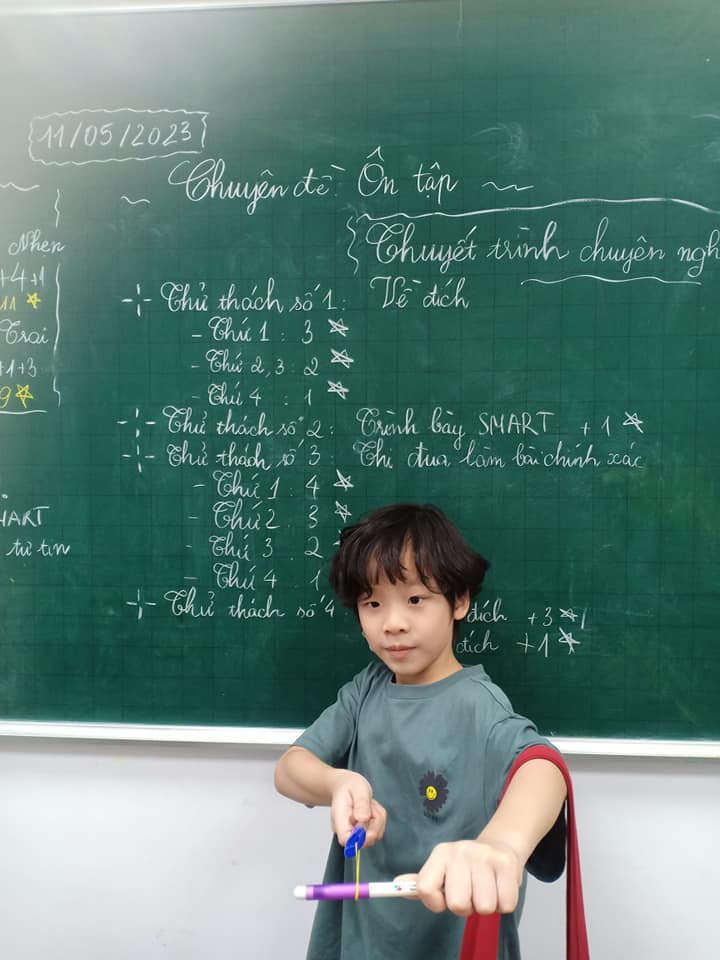 11/05/2023
Chuyên đề: Ôn tập
Thuyết trình chuyên
Nhen
+4+1
11
Trai
+1+3
9
MART
tự tin
Thử thách số 1: Về đích
- Thứ 1: 3
- Thứ 2, 3: 2
- Thứ 4: 1
Thử thách số 2: Trình bày SMART +1
Thử thách số 3: Thi đua làm bài chính xác
- Thứ 1: 4
- Thứ 2: 3
- Thứ 3: 2
- Thứ 4: 1
Thử thách số 4 đích +3
đích +1